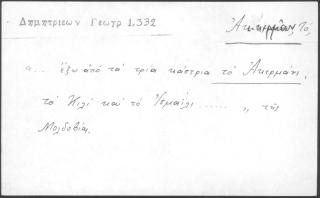 Δημητριεων Γεωγρ 1.332
Ἀκκερμάν, Τό,
"... ἔξω ἀπό τά τρία κάστρια τό Ἀκερμάνι,
τό Κιλί καί τό Ἰσμαΐλι ..... „ τῆς
Μολδοβίας